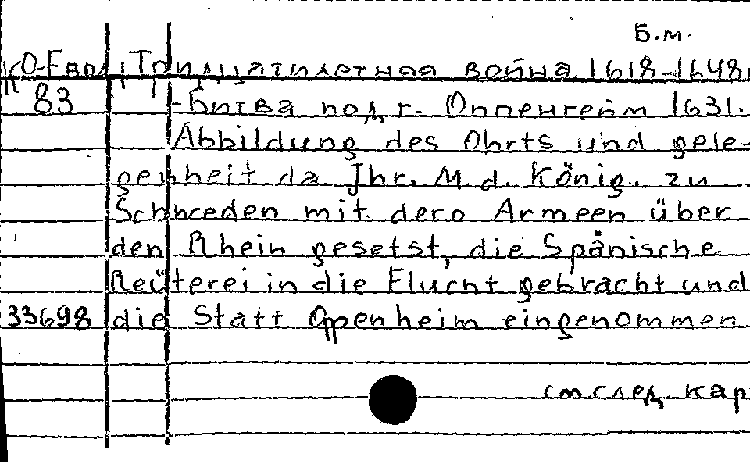 Б.м.
КО-Евр. Тридцатилетняя война 1618-1648
п 83 -Битва под г. Оппенгейм 1631.
Abbildung des Ohrts und gele-
genheit da Ihr. M. d. König. zu
Schweden mit dero Armeen über
den Rhein gesetst, die Spänische
Reüterei in die Flucht gebracht und
33698 die Statt Oppenheim eingenommen
см. след. кар